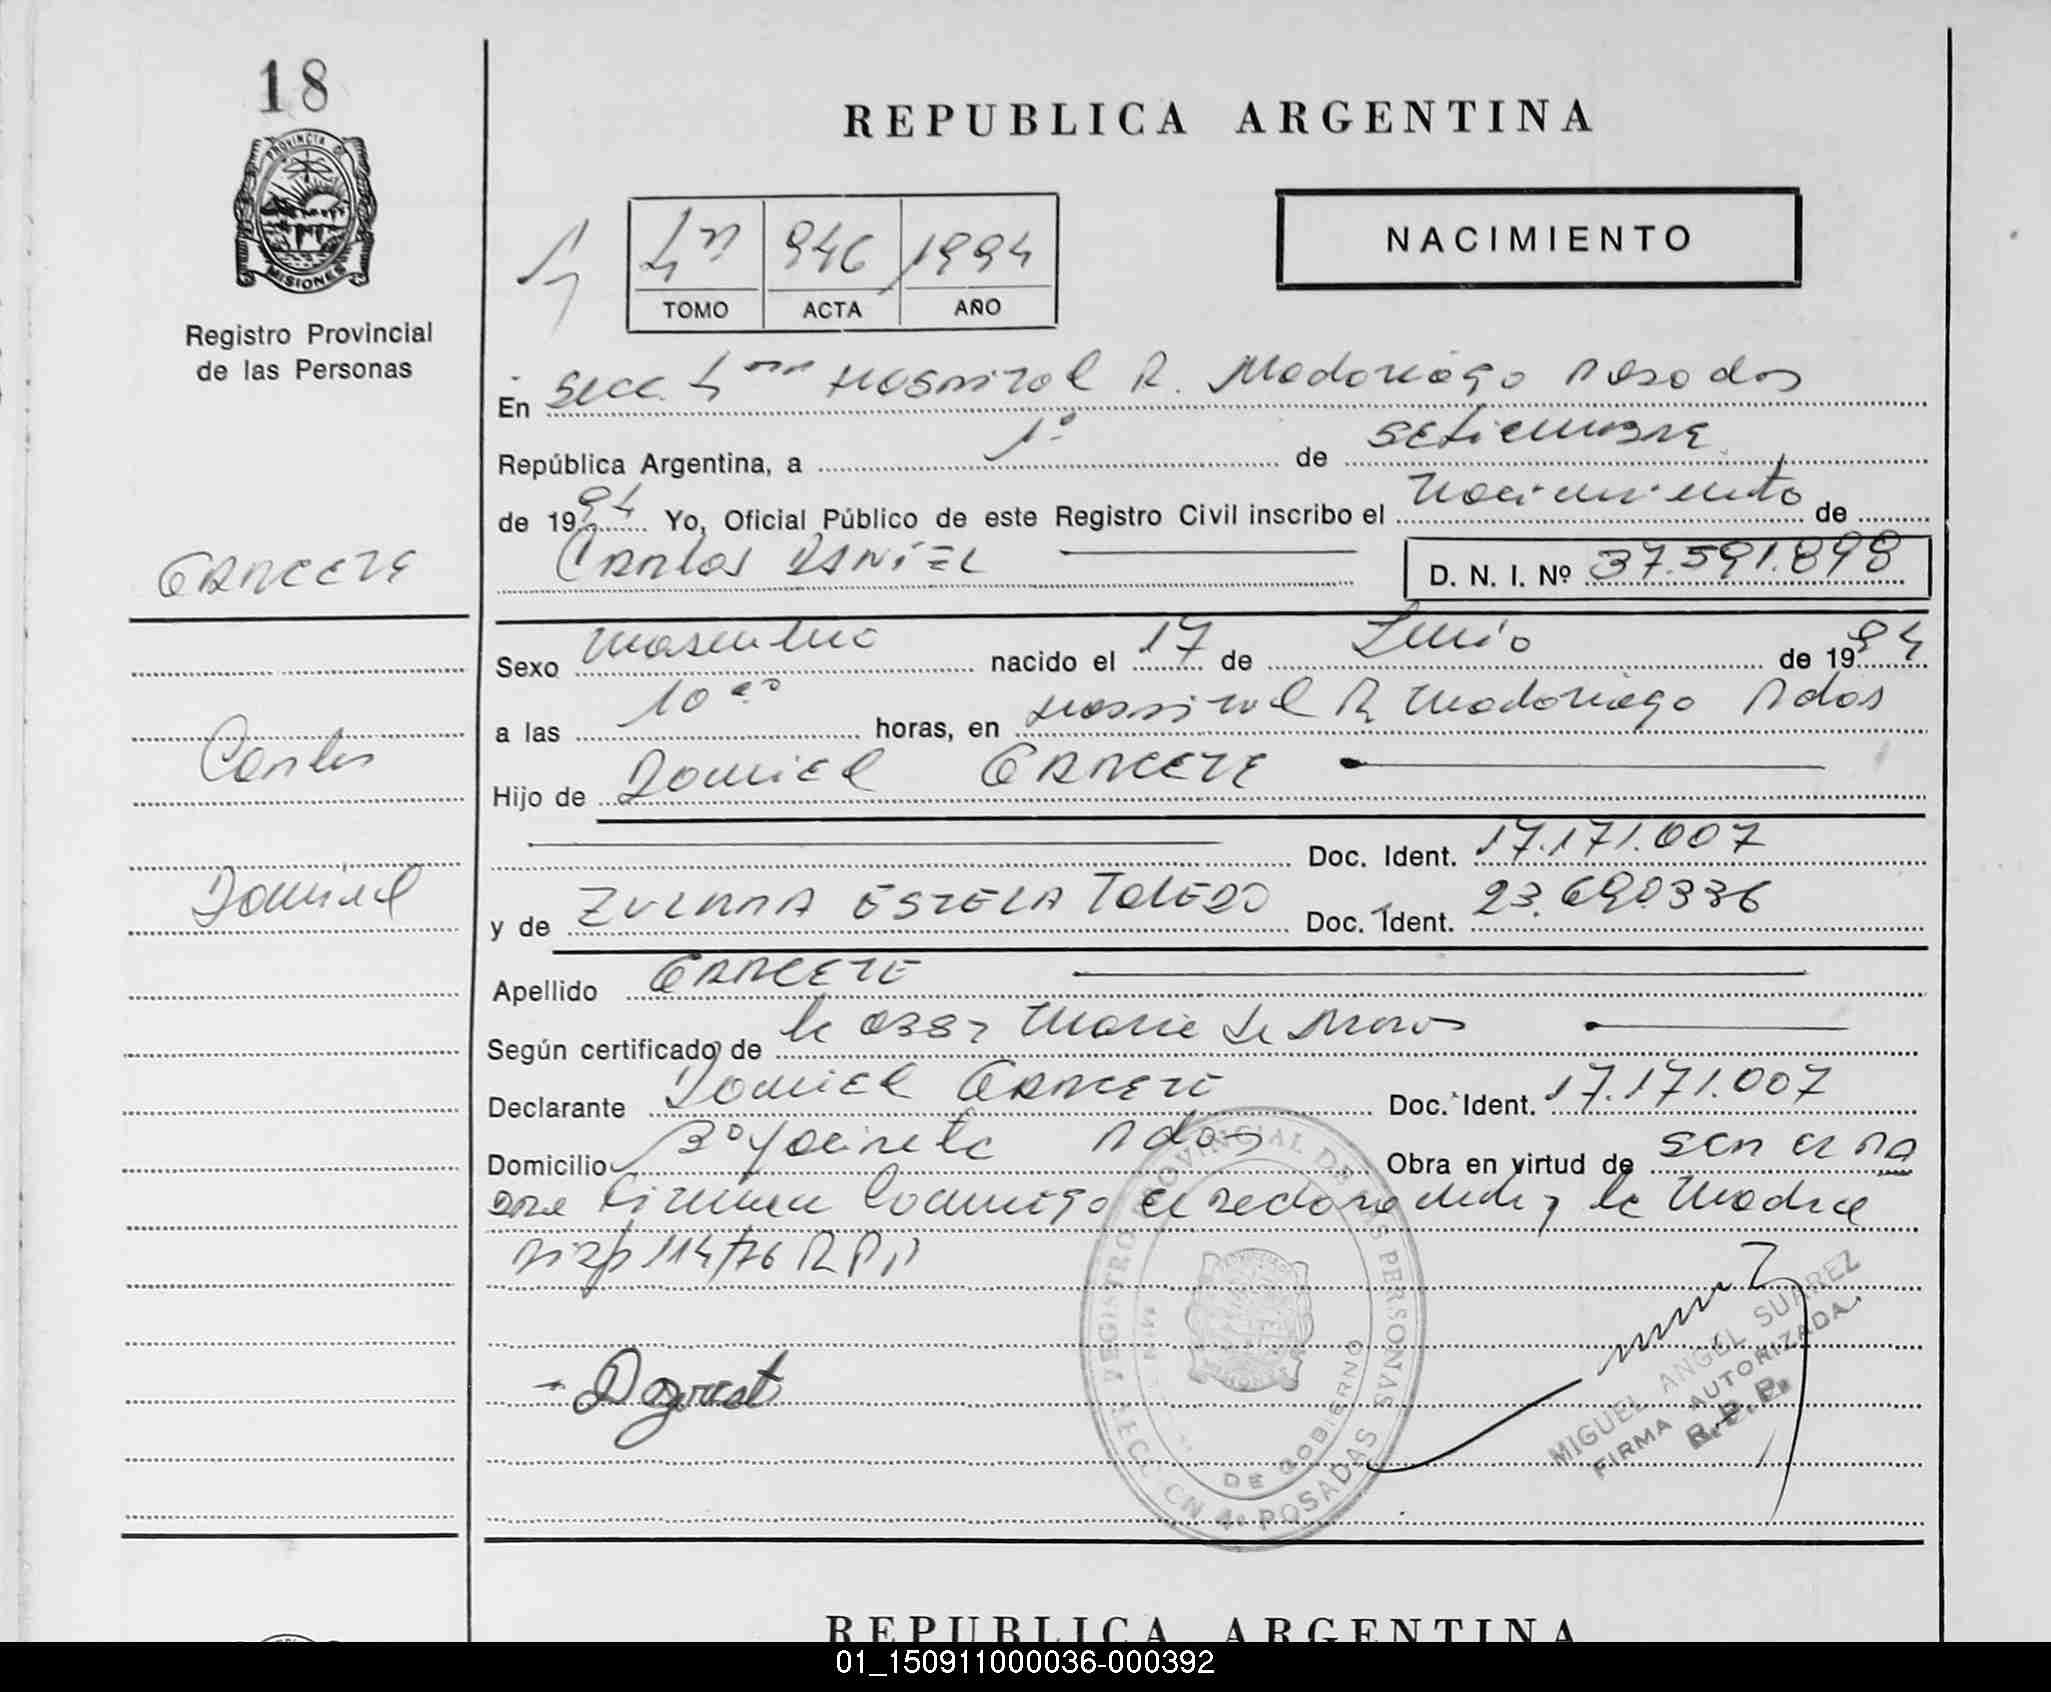 18
PROVINCIA D
MISIONES
Registro Provincial
de las Personas
REPUBLICA ARGENTINA
NACIMIENTO
946 1994
TOMO ACTA AÑO
En Secc. Hospital R. Madariaga Posadas
República Argentina, a 1º de Setiembre
de 1994 Yo, Oficial Público de este Registro Civil inscribo el Nacimiento de
CARLOS DANIEL
D. N. I. Nº 37.591.898
Sexo Masculino nacido el 17 de Junio de 1994
a las 10 horas, en Hospital R. Madariaga Pdas
Hijo de Daniel CARCETE
Doc. Ident. 17.171.007
y de ZULMMA ESTELA TOLEDO Doc. Ident. 23.690.336
Apellido CARCETE
Según certificado de la Maria
Declarante Daniel CARCETE Doc. Ident. 17.171.007
Domicilio Bº Yacireta Pdas Obra en virtud de ser el pa
dre Firman Conmigo el declarante y la Madre
Disp 114/76 R.P.P.
CARCETE
Carlos
Daniel
REGISTRO PROVINCIAL DE LAS PERSONAS
DE GOBIERNO
SECCION 4ª POSADAS
MIGUEL ANGEL SUAREZ
FIRMA AUTORIZADA
R.P.P.
REPUBLICA ARGENTINA
01_150911000036-000392